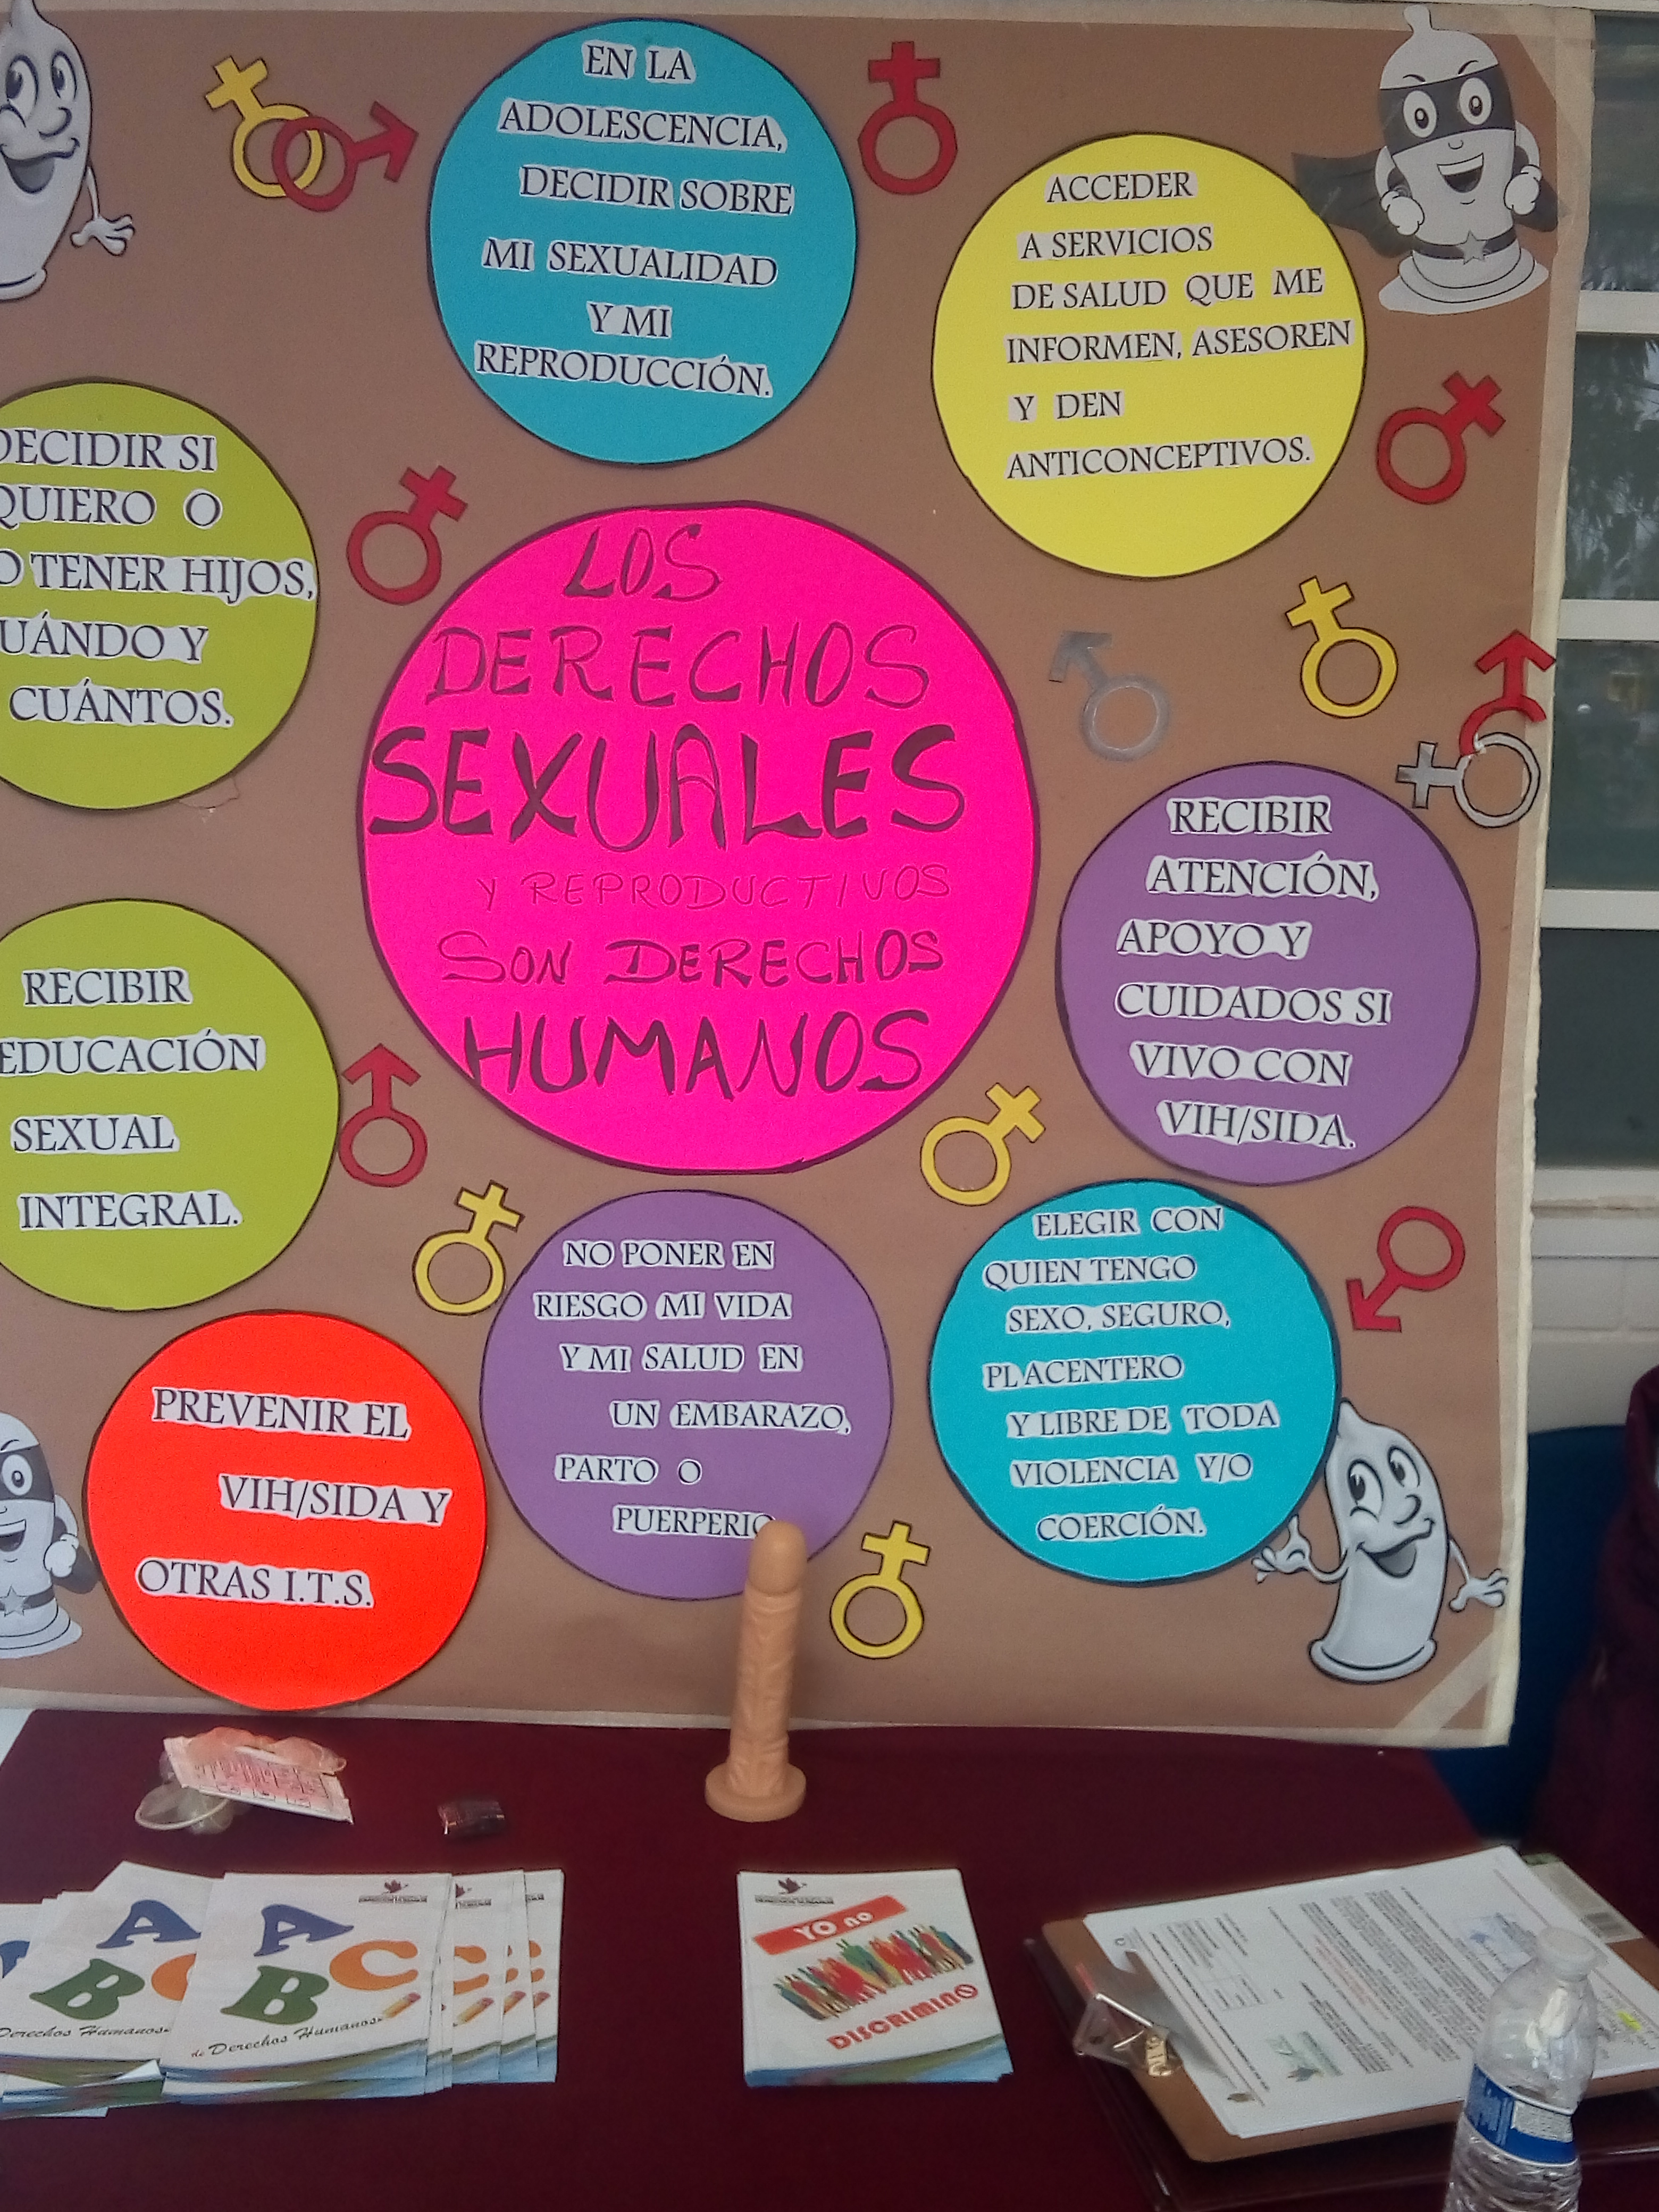 EN LA
ADOLESCENCIA,
DECIDIR SOBRE
MI SEXUALIDAD
Y MI
REPRODUCCIÓN.
ACCEDER
A SERVICIOS
DE SALUD QUE ME
INFORMEN, ASESOREN
Y DEN
ANTICONCEPTIVOS.
DECIDIR SI
QUIERO O
O TENER HIJOS,
UÁNDO Y
CUÁNTOS.
LOS
DERECHOS
SEXUALES
Y REPRODUCTIVOS
SON DERECHOS
HUMANOS
RECIBIR
ATENCIÓN,
APOYO Y
CUIDADOS SI
VIVO CON
VIH/SIDA.
RECIBIR
EDUCACIÓN
SEXUAL
INTEGRAL.
NO PONER EN
RIESGO MI VIDA
Y MI SALUD EN
UN EMBARAZO,
PARTO O
PUERPERIO
ELEGIR CON
QUIEN TENGO
SEXO, SEGURO,
PLACENTERO
Y LIBRE DE TODA
VIOLENCIA Y/O
COERCIÓN.
PREVENIR EL
VIH/SIDA Y
OTRAS I.T.S.
A
B C
Derechos Humanos
A
B C
de Derechos Humanos
C
YO no
DISCRIMINO